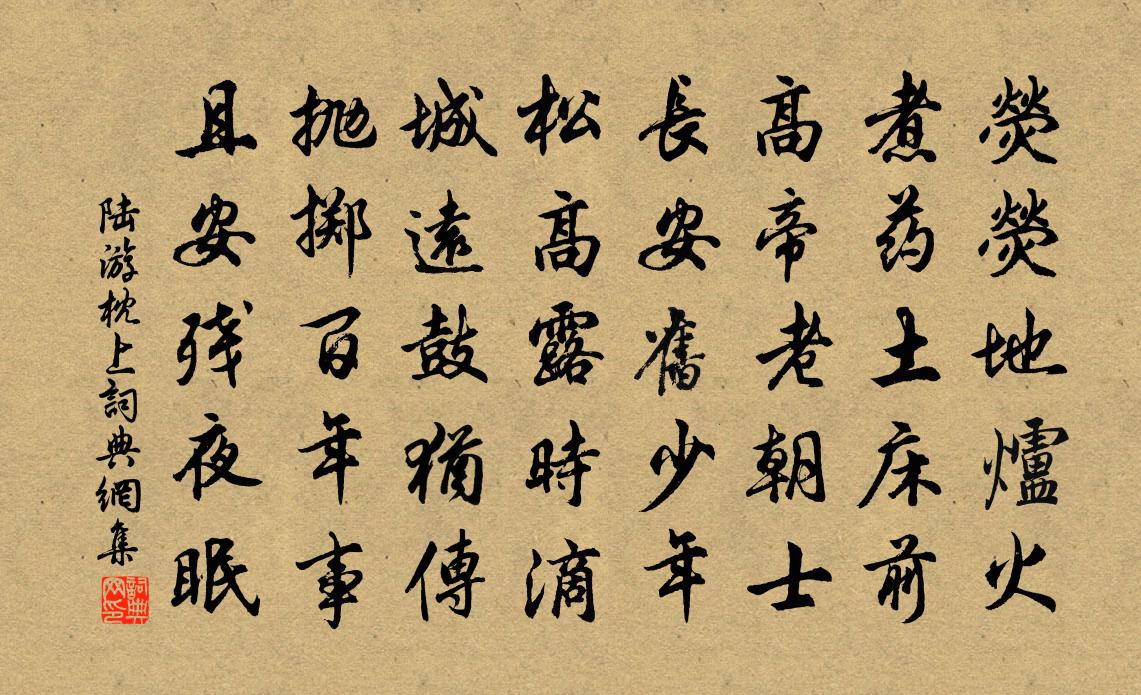 熒熒地爐火
煮药土床前
高帝老朝士
長安舊少年
松高露時滴
城遠鼓猶傳
抛掷百年事
且安残夜眠
陆游枕上詞典網集
詞典网印